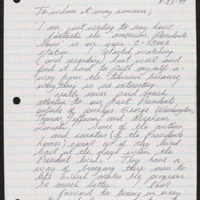 8-23-99
To whom it may concern;
I am just writing to say how
fantastic the american Presidents
Series is on your C-SPAN
station. I started watching
(and recording) last week and
find it hard to pull myself a-
way from the television because
everything is so interesting.
I never paid much
attention to our past Presidents
outside of perhaps George Washington,
Thomas Jefferson, and Abraham
Lincoln. Some of the writers
and curators (of the Presidents
homes) speak as if they lived
back in the days when the
President lived. They have a
way of bringing these men to
life which makes the program
so much better. I look
forward to tuning in every